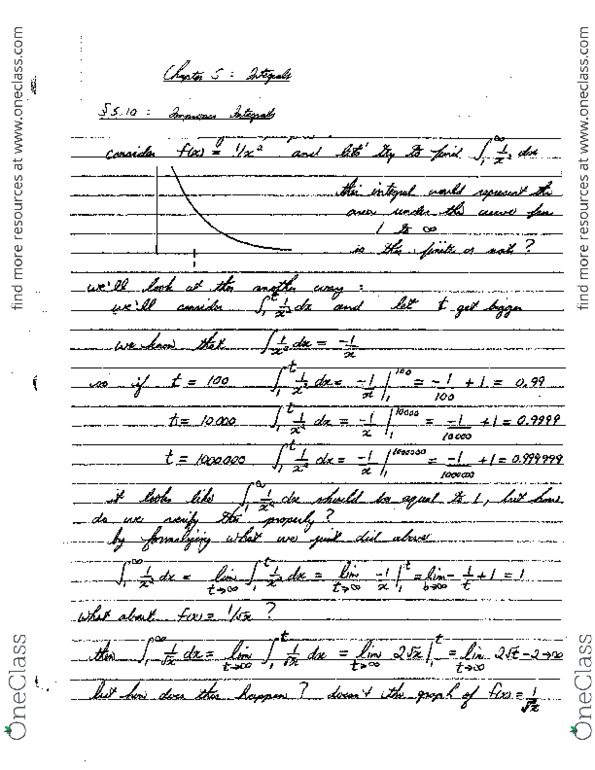 Chapter 5 : Integrals
§5.10 : Improper Integrals
consider f(x) = 1/x² and lets' try to find ∫₁^∞ 1/x² dx
this integral would represent the
area under the curve from
1 to ∞
is this finite or not ?
we'll look at this another way :
we'll consider ∫₁^t 1/x² dx and let t get bigger
we know that ∫ 1/x² dx = -1/x
so if t = 100 ∫₁^t 1/x² dx = -1/x |₁^100 = -1/100 + 1 = 0.99
t = 10000 ∫₁^t 1/x² dx = -1/x |₁^10000 = -1/10000 + 1 = 0.9999
t = 1000000 ∫₁^t 1/x² dx = -1/x |₁^1000000 = -1/1000000 + 1 = 0.999999
it looks like ∫₁ 1/x² dx should be equal to 1, but how
do we verify this properly ?
by formalizing what we just did above
∫₁^∞ 1/x² dx = lim t→∞ ∫₁^t 1/x² dx = lim t→∞ -1/x |₁^t = lim - 1/t + 1 = 1
what about f(x) = 1/√x ?
then ∫₁^∞ 1/√x dx = lim t→∞ ∫₁^t 1/√x dx = lim t→∞ 2√x |₁^t = lim t→∞ 2√t - 2 → ∞
but how does this happen ? doesn't the graph of f(x) = 1/√x
find more resources at www.oneclass.com
OneClass
find more resources at www.oneclass.com
OneClass